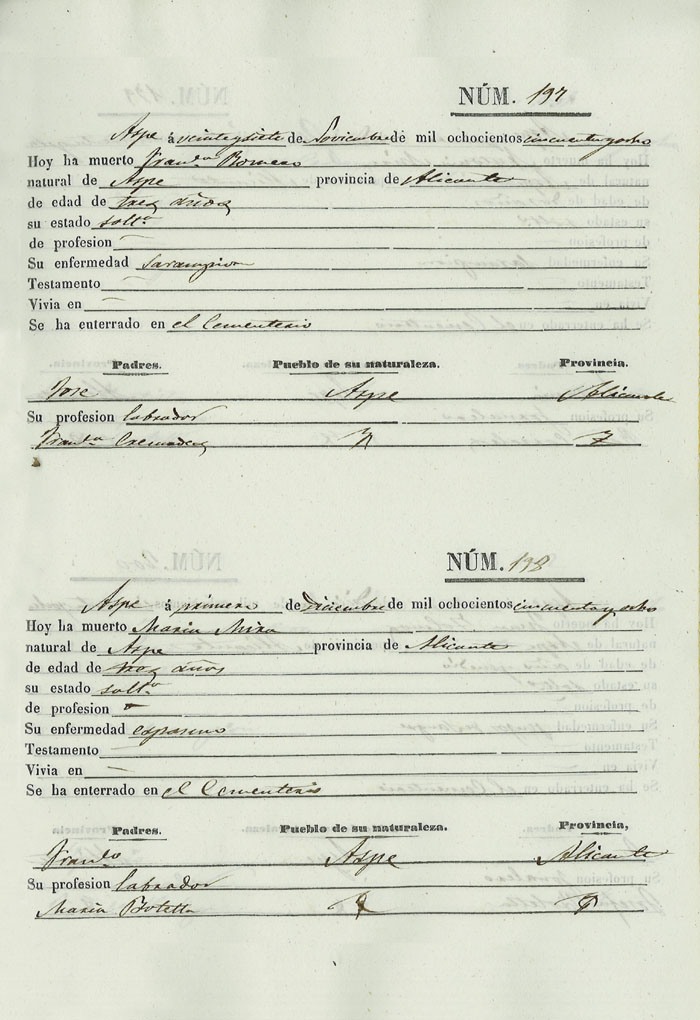 NÚM. 197
Aspe á veinteysiete de Noviembre de mil ochocientos cincuentayocho
Hoy ha muerto Franca Romero
natural de Aspe provincia de Alicante
de edad de tres años
su estado solta
de profesion —
Su enfermedad sarampion
Testamento —
Vivia en —
Se ha enterrado en el Cementerio
Padres. Pueblo de su naturaleza. Provincia.
Jose Aspe Alicante
Su profesion labrador
Franca Cremades
NÚM. 198
Aspe á primero de Diciembre de mil ochocientos cincuentayocho
Hoy ha muerto Maria Mira
natural de Aspe provincia de Alicante
de edad de tres años
su estado solta
de profesion
Su enfermedad espasmo
Testamento —
Vivia en —
Se ha enterrado en el Cementerio
Padres. Pueblo de su naturaleza. Provincia,
Franco Aspe Alicante
Su profesion labrador
Maria Botella